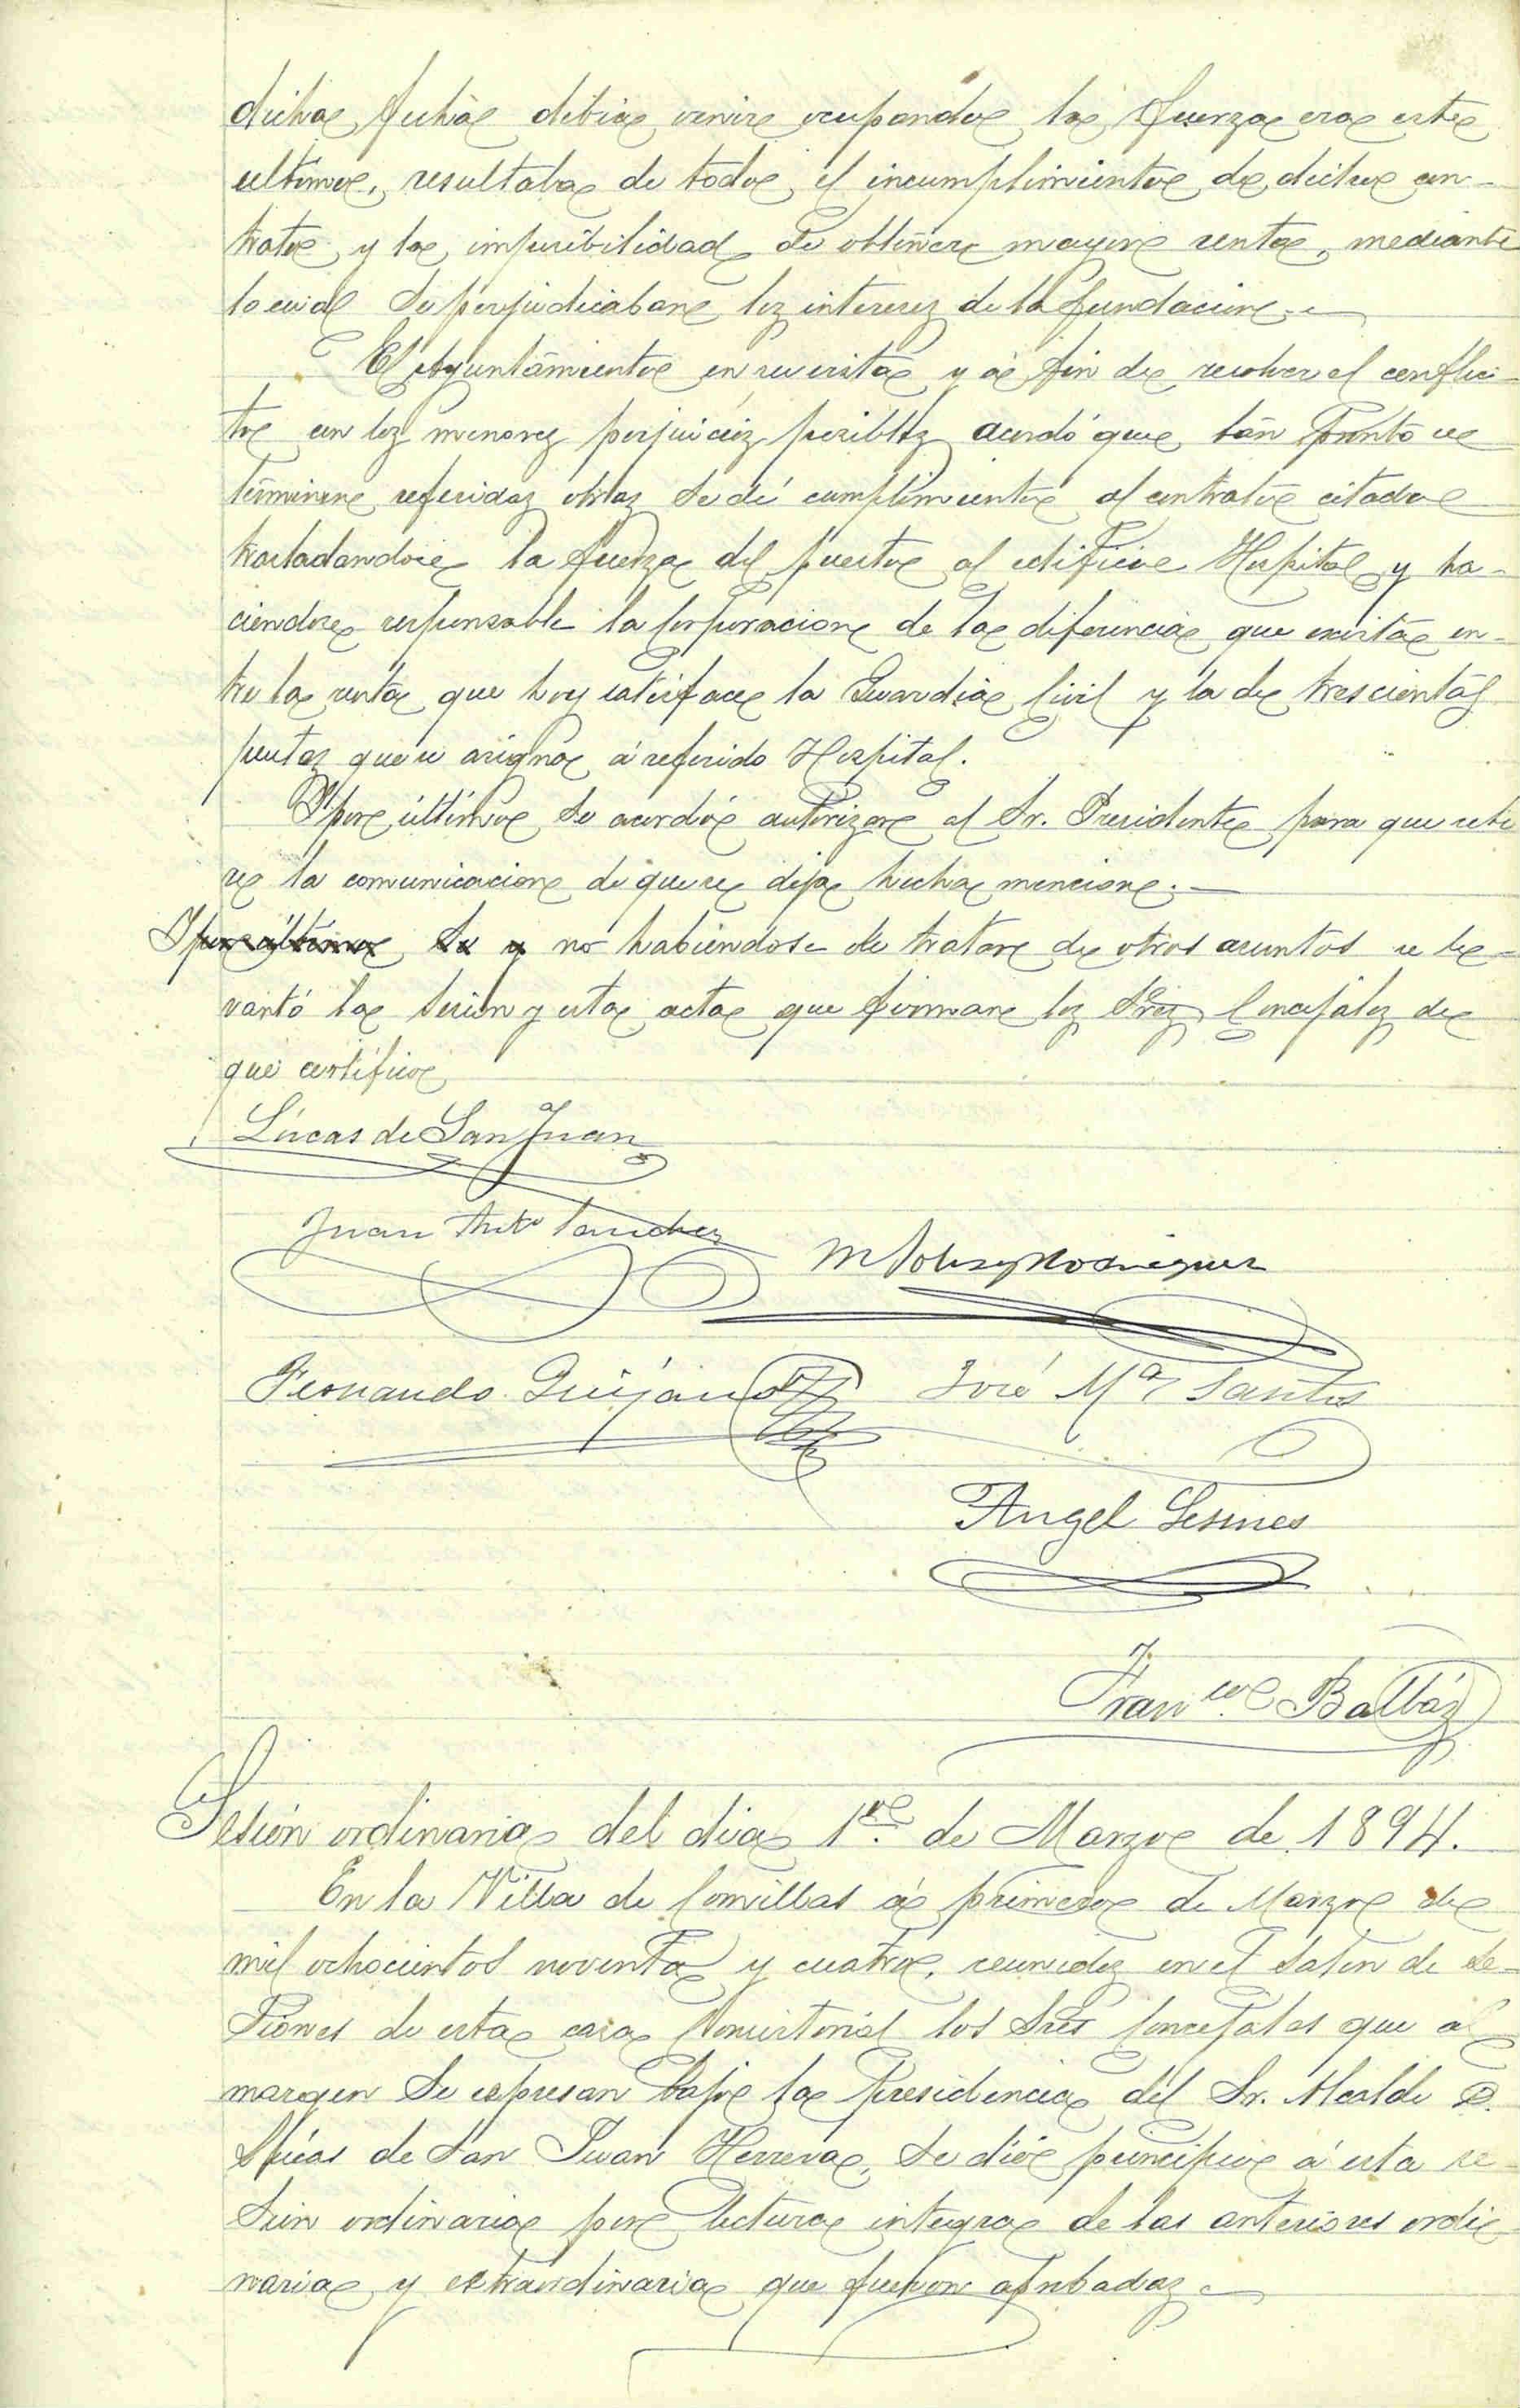 dicha fecha debia venir ocupando la fuerza era este
ultimo, resultaba de todo el incumplimiento de dicho con-
trato y la imposibilidad de obtener mayor renta, mediante
lo cual se perjudicaban los intereses de la fundacion.
El Ayuntamiento en su vista y a fin de resolver el conflic-
to con los menores perjuicios posibles acordó que tan pronto se
terminen referidas obras se dé cumplimiento al contrato citado
trasladandose la fuerza del puesto al edificio Hospital y ha-
ciendose responsable la Corporacion de la diferencia que exista en-
tre la renta que hoy satisface la Guardia Civil y la de trescientas
pesetas que se asigna á referido Hospital.
Y por último se acordó autorizar al Sr. Presidente para que reti
re la comunicacion de que se deja hecha mencion.
Y por último se y no habiendose de tratar de otros asuntos se le-
vantó la sesion y esta acta que firman los Sres Concejales de
que certifico
Lúcas de San Juan
Juan Anto Sanchez
M Rodriguez
Fernando Quijano José Ma Santos
Angel Lesmes
Franco Balbás
Sesión ordinaria del dia 1ro de Marzo de 1894.
En la Villa de Comillas á primero de Marzo de
mil ochocientos noventa y cuatro, reunidos en el salon de se-
siones de esta casa Consistorial los Sres Concejales que al
margen se espresan bajo la Presidencia del Sr. Alcalde D.
Lúcas de San Juan Herrera, se dió principio á esta se-
sion ordinaria por lectura integra de las anteriores ordi-
naria y extraordinaria que fueron aprobadas